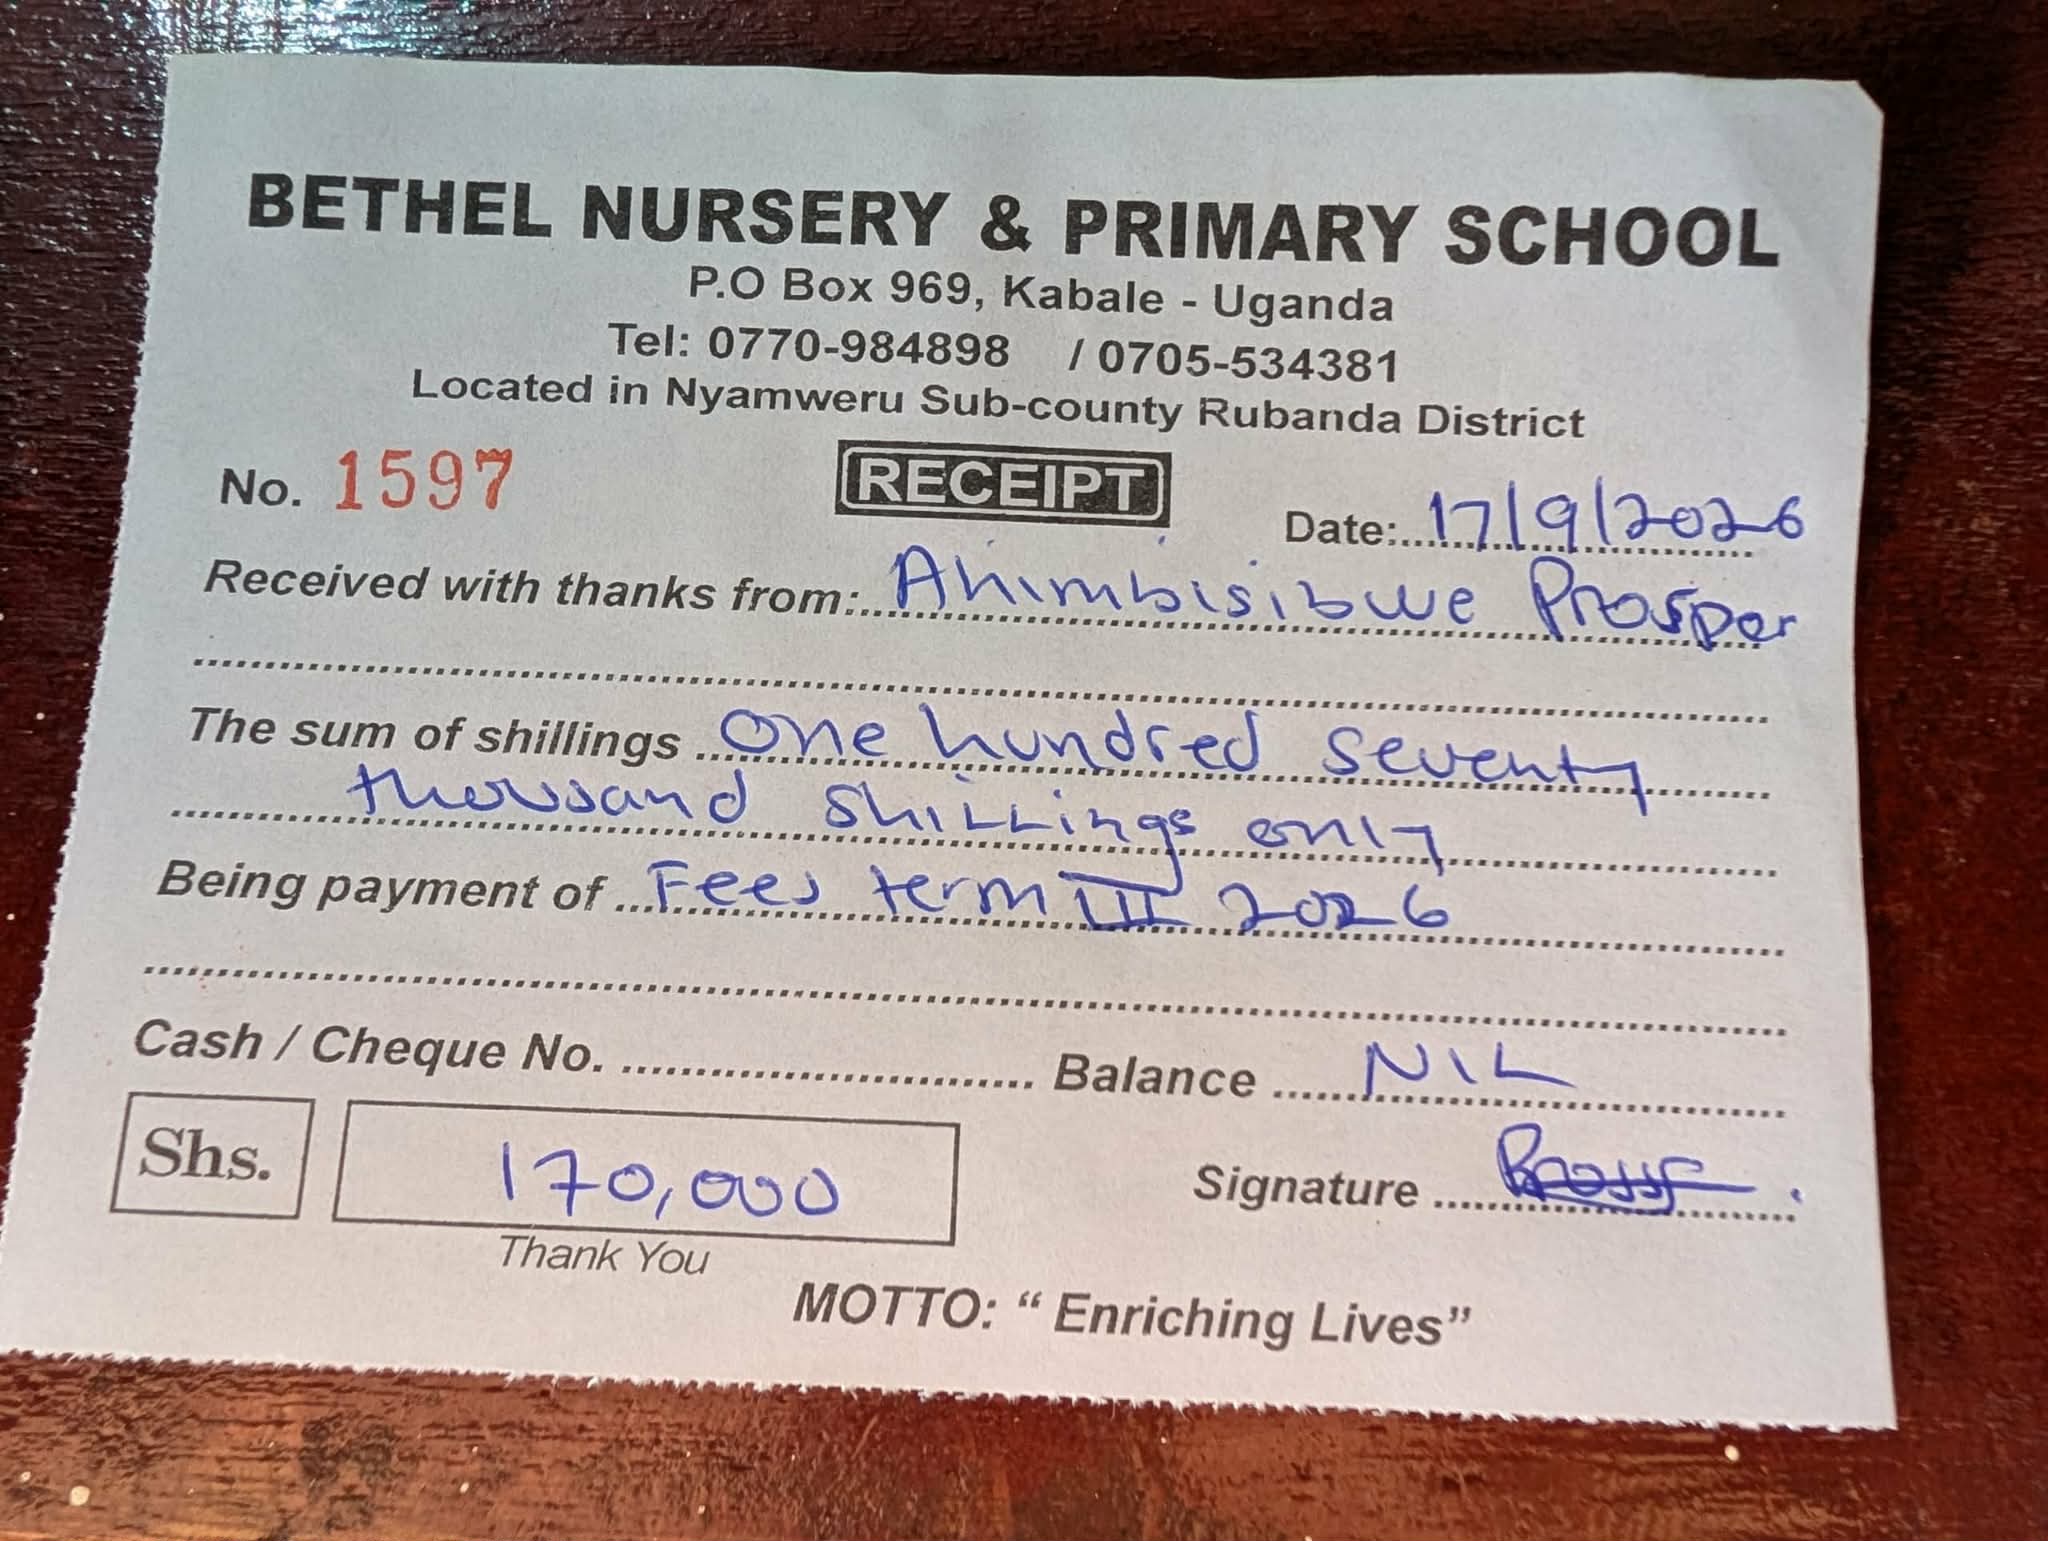 BETHEL NURSERY & PRIMARY SCHOOL
P.O Box 969, Kabale - Uganda
Tel: 0770-984898 / 0705-534381
Located in Nyamweru Sub-county Rubanda District
No. 1597 RECEIPT Date: 17/9/2026
Received with thanks from: Ahimbisibwe Prosper
The sum of shillings one hundred seventy
thousand shillings only
Being payment of Fees term III 2026
Cash / Cheque No. Balance NIL
Shs. 170,000 Signature
Thank You
MOTTO: “ Enriching Lives”